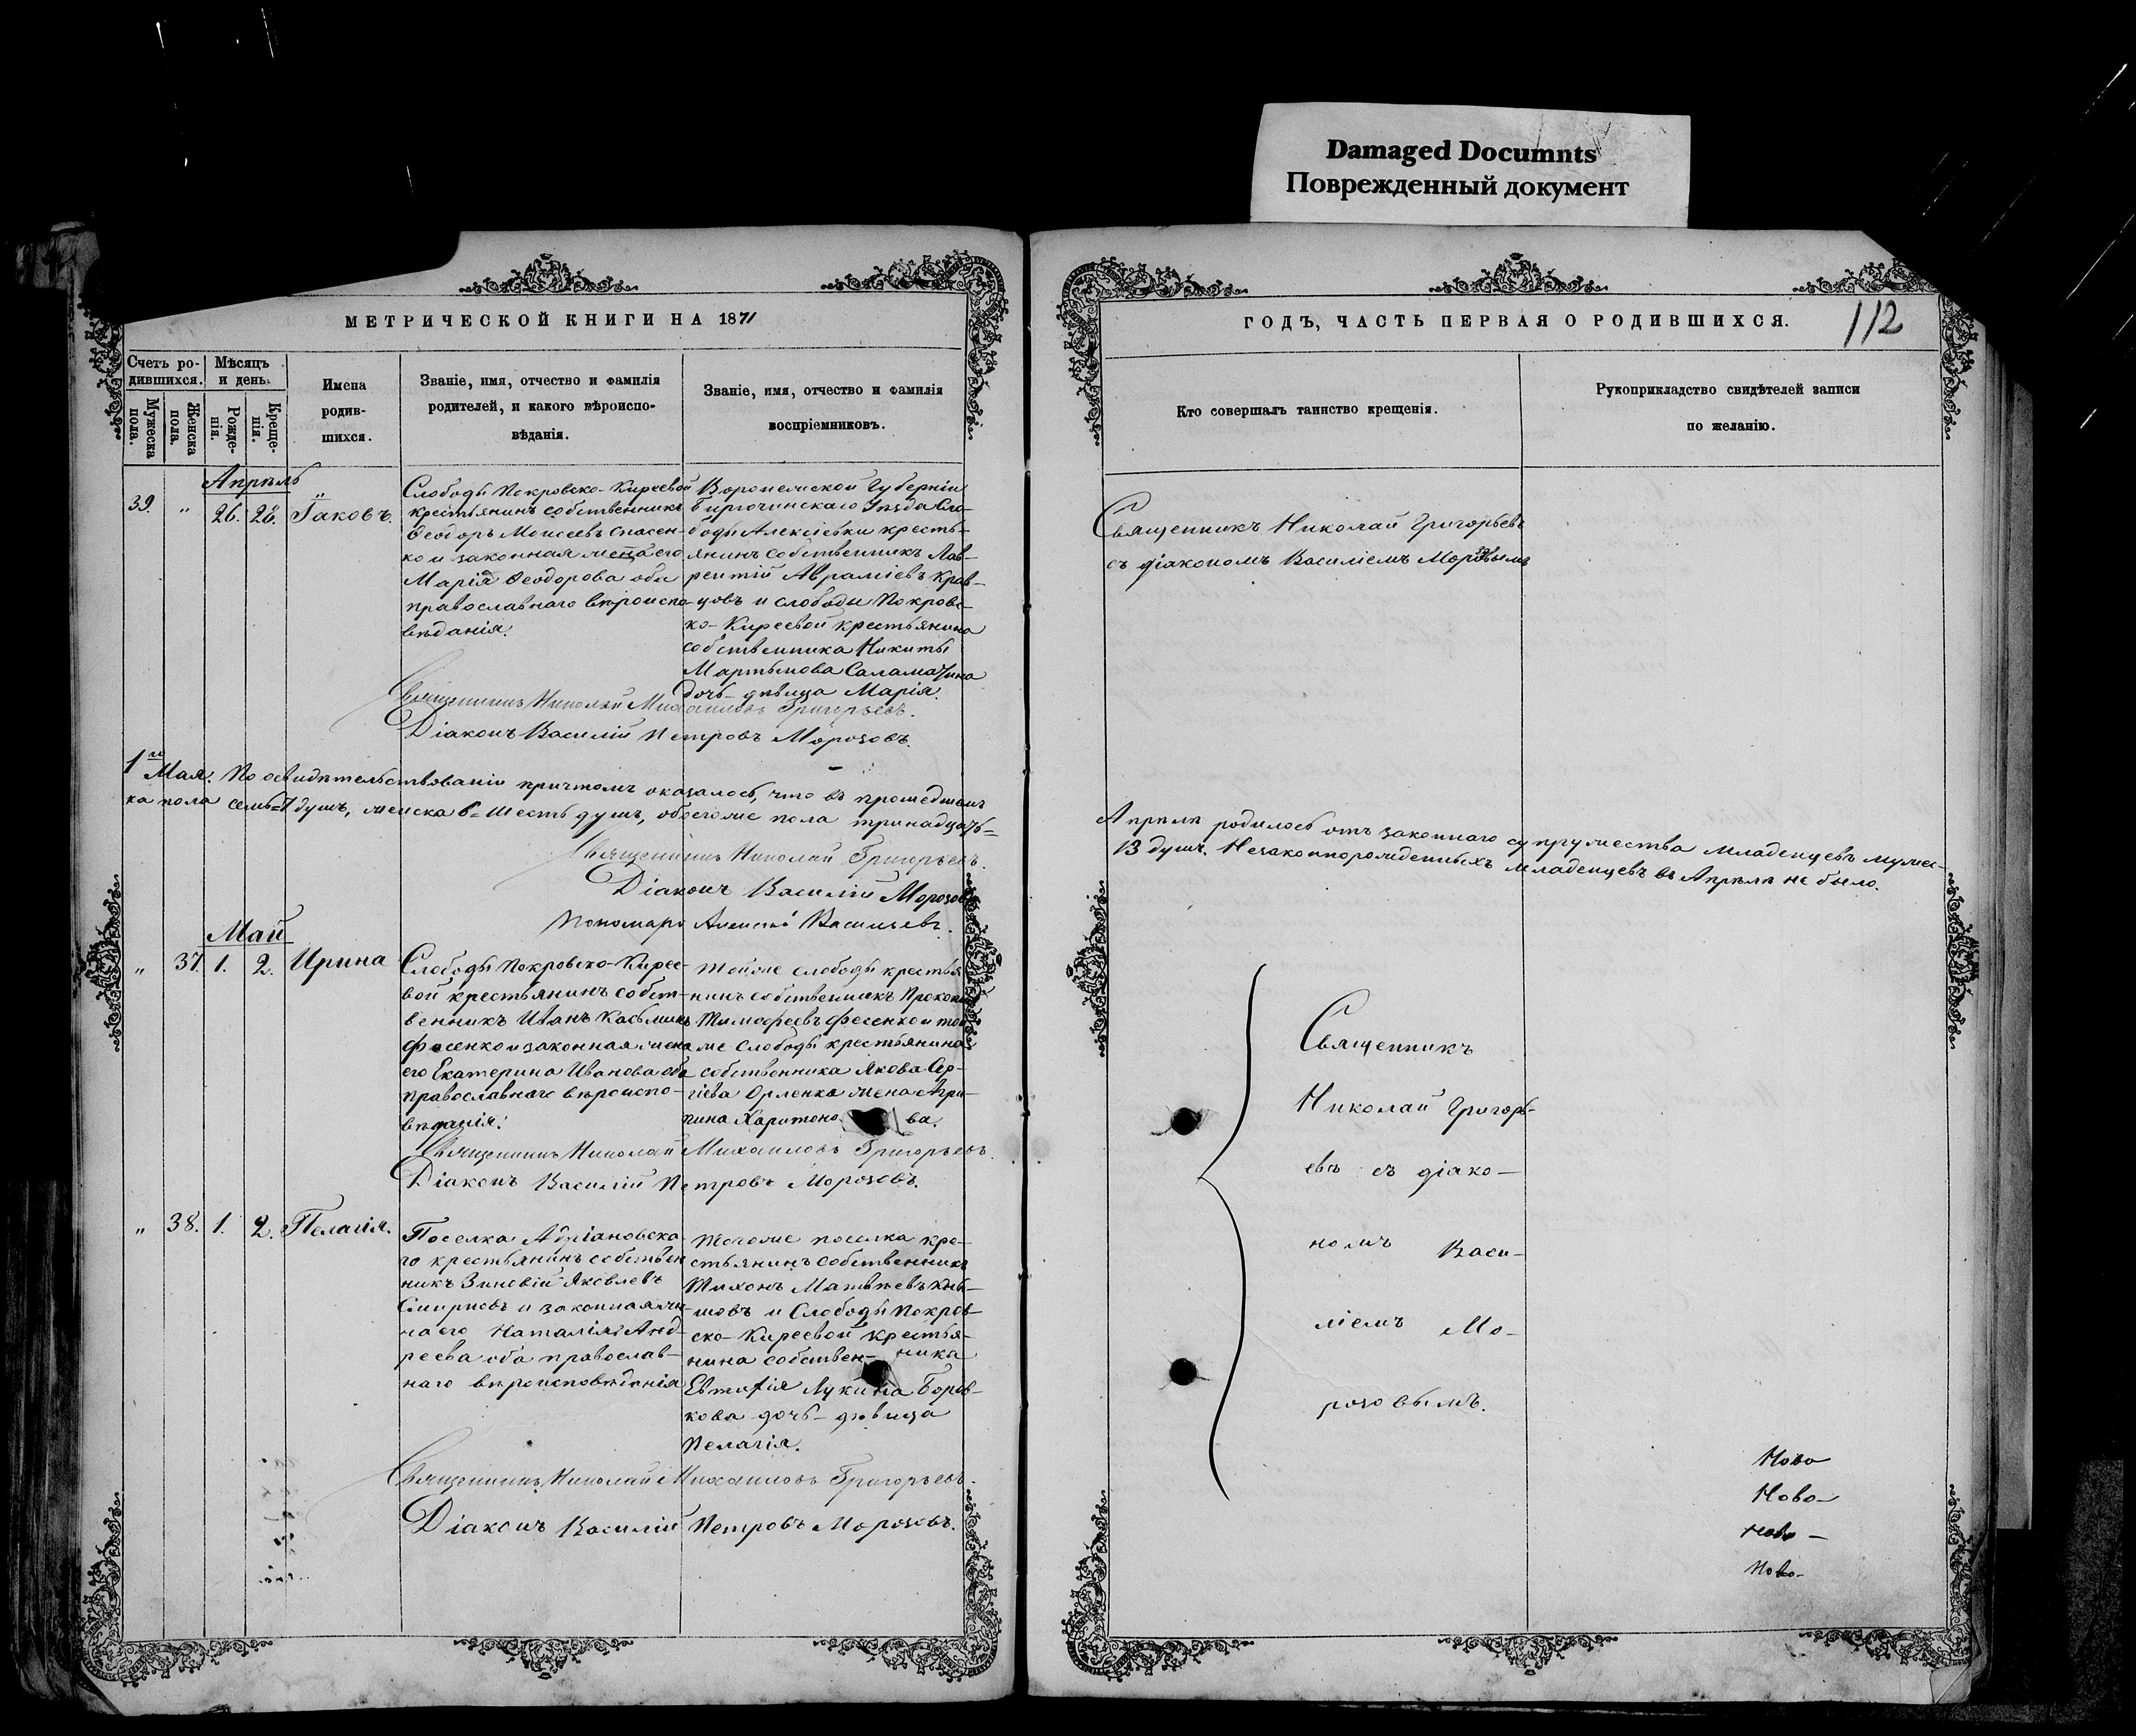 Damaged Documnts
Поврежденный документ
МЕТРИЧЕСКОЙ КНИГИ НА 1871
Счетъ ро-
дившихся.
Мѣсяцъ
и день.
Мужеска
пола.
Женска
пола.
Рожде-
нія.
Креще-
нія.
Имена
родив-
шихся.
Званіе, имя, отчество и фамилія
родителей, и какого вѣроиспо-
вѣданія.
Званіе, имя, отчество и фамилія
воспріемниковъ.
Апрѣль
39. " 26. 28. Іаковъ.
Слободы Покровско-Киреевой
крестьянинъ собственникъ
Ѳеодоръ Моисеевъ Спасен-
ко и законная жена его
Марія Ѳеодорова оба
православнаго вѣроиспо-
вѣданія.
Воронежской Губерніи
Бирючинскаго Уѣзда Сло-
боды Алексѣевки кресть-
янинъ собственникъ Лав-
рентій Аврамiевъ Крав-
цовъ и слободы Покровс-
ко-Киреевой крестьянина
собственника Никиты
Мартынова Саламатина
дочь-дѣвица Марія.
Священникъ Николай Михаиловъ Григорьевъ.
Діаконъ Василій Петровъ Морозовъ.
1го Мая. По освидѣтельствованіи причтомъ оказалось, что въ прошедшемъ
ка пола семь=7 душъ, женска 6=шесть душъ, обоего же пола тринадцать=
Священникъ Николай Григорьевъ.
Діаконъ Василій Морозовъ
Пономарь Алексѣй Васильевъ.
Май
" 37. 1. 2. Ирина
Слободы Покровско-Кирее-
вой крестьянинъ собст-
венникъ Иванъ Касьминъ
Фесенко и законная жена
его Екатерина Иванова оба
православнаго вѣроиспо-
вѣданія.
Тойже слободы крестья
нинъ собственникъ Прокопій
Тимофеевъ Фесенко и той
же слободы крестьянина
собственника Якова Сер-
гіева Орленка жена Агри-
пина Харитонова.
Священникъ Николай Михаиловъ Григорьевъ.
Діаконъ Василій Петровъ Морозовъ.
" 38. 1. 2. Пелагія.
Поселка Адріановска
го крестьянинъ собствен
никъ Зиновій Яковлевъ
Смирновъ и законная же
на его Наталія Анд-
реева оба православ-
наго вѣроисповѣданія
Тогоже поселка кре-
стьянинъ собственникъ
Тихонъ Матвѣевъ
и Слободы Покров-
ско-Киреевой крестья-
нина собствен-ника
Евтифія Лукина Боров-
кова дочь-дѣвица
Пелагія.
Священникъ Николай Михаиловъ Григорьевъ.
Діаконъ Василій Петровъ Морозовъ.
ГОДЪ, ЧАСТЬ ПЕРВАЯ О РОДИВШИХСЯ.
112
Кто совершалъ таинство крещенія.
Рукоприкладство свидѣтелей записи
по желанію.
Священникъ Николай Григорьевъ
съ діакономъ Василіемъ Морозовымъ
Апрѣлѣ родилось отъ законнаго супружества младенцевъ мужес-
13 душъ. Незаконнорожденныхъ младенцевъ въ Апрѣлѣ не было.
Священникъ
Николай Григорь-
евъ съ діако-
номъ Васи-
ліемъ Мо-
розовымъ.
Ново
Ново-
Ново-
Ново-